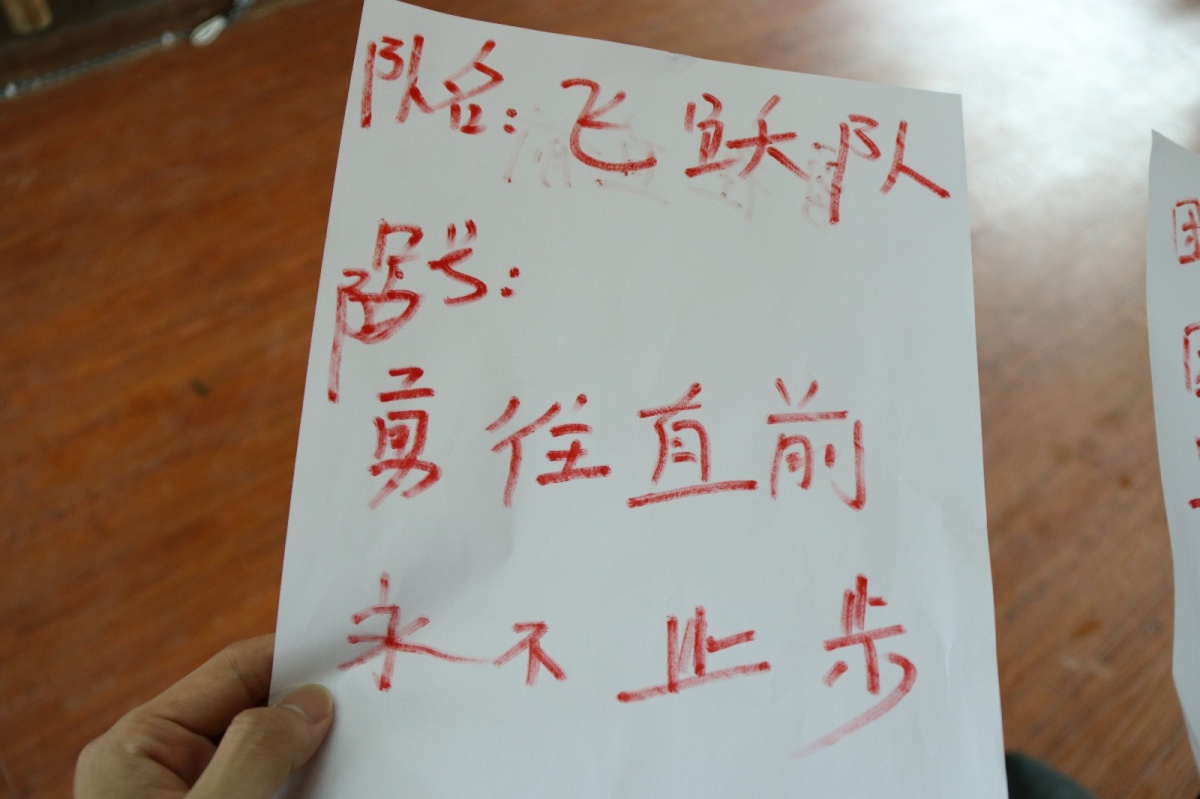 队名:飞跃队
队号:
勇往直前
永不止步